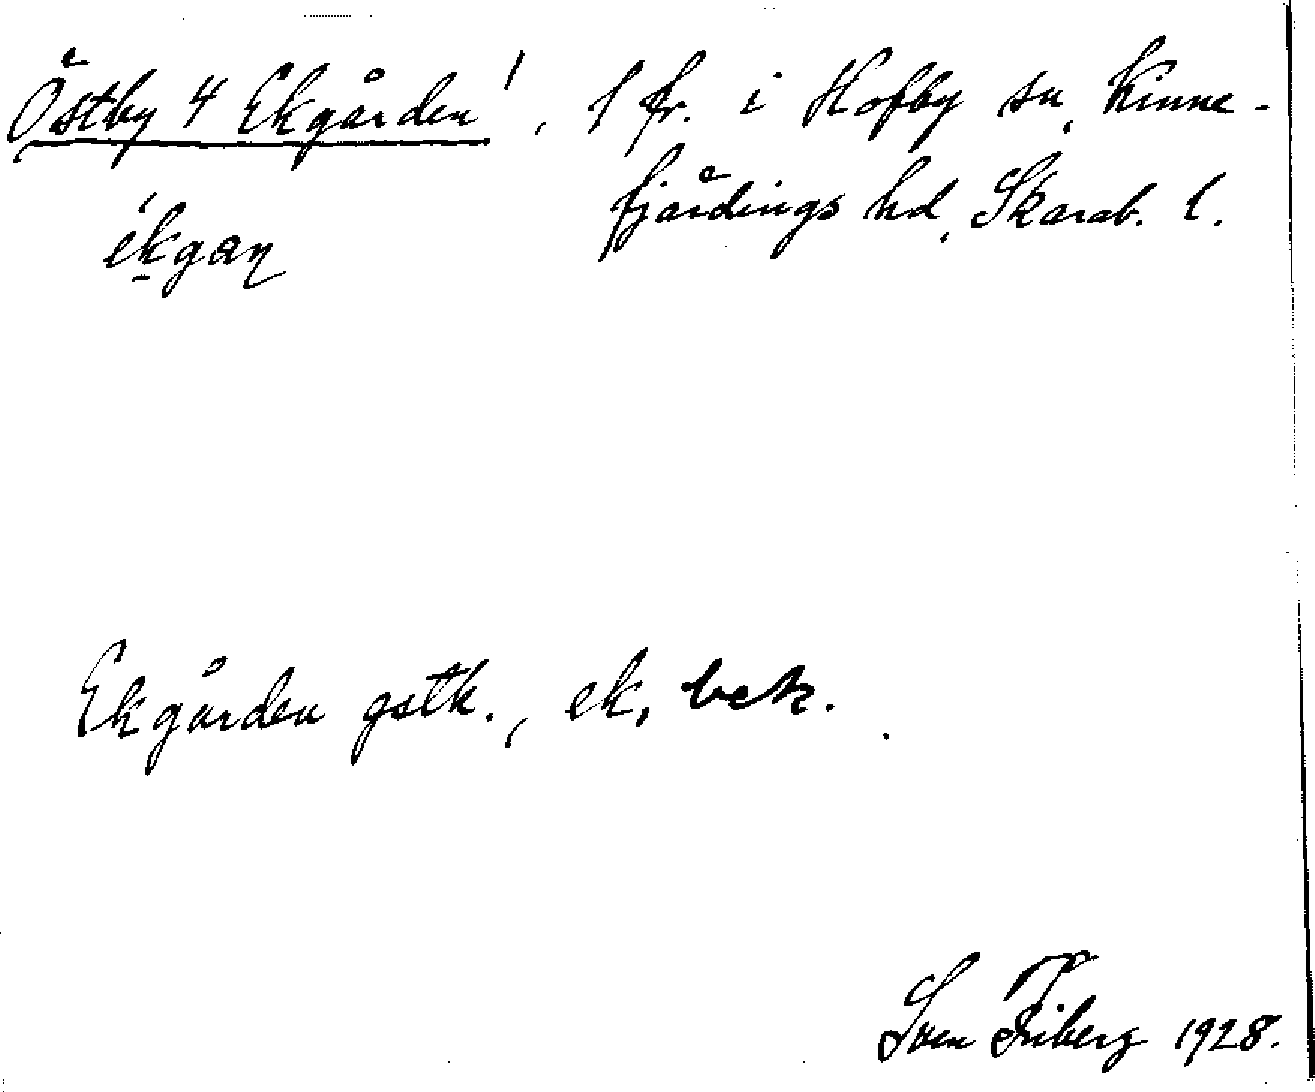 Östby 4 Ekgården', 1 fr. i Hofby sn, Kinne-
fjärdings hd, Skarab. l.
ékgaṇ
Ekgården gstk., ek, bek.
Sven Friberg 1928.